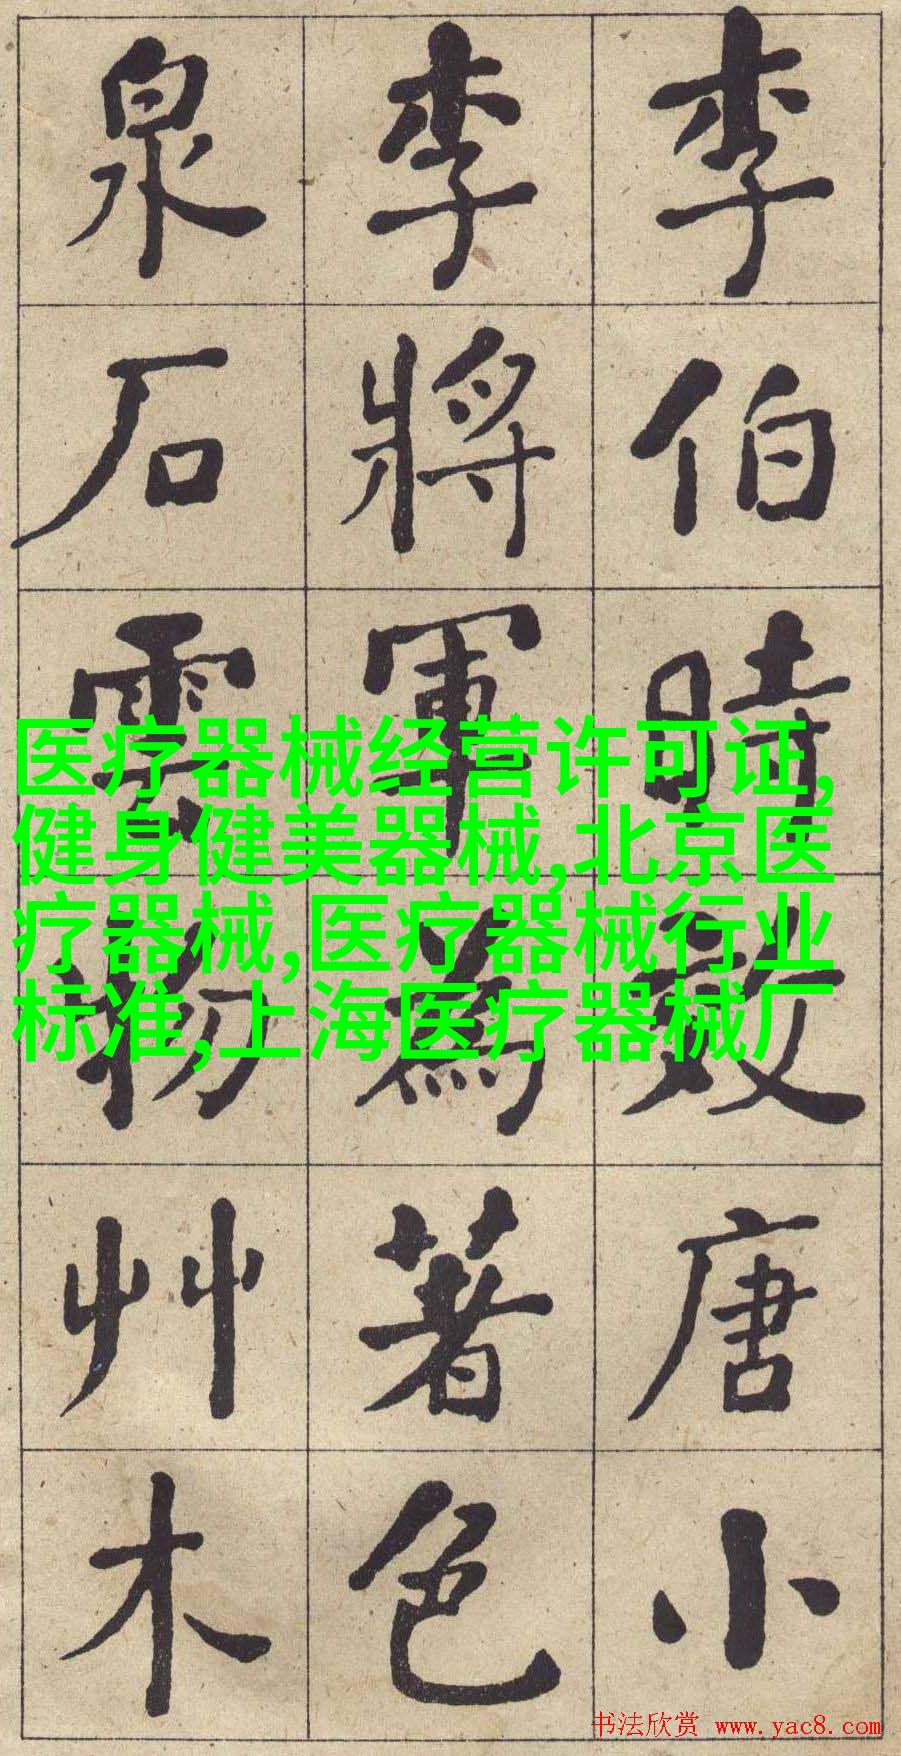 李伯時效唐小
李將軍為著色
泉石雲物艸木
医疗器械经营许可证,
健身健美器械,北京医
疗器械,医疗器械行业
标准,上海医疗器械厂
书法欣赏 www.yac8.com